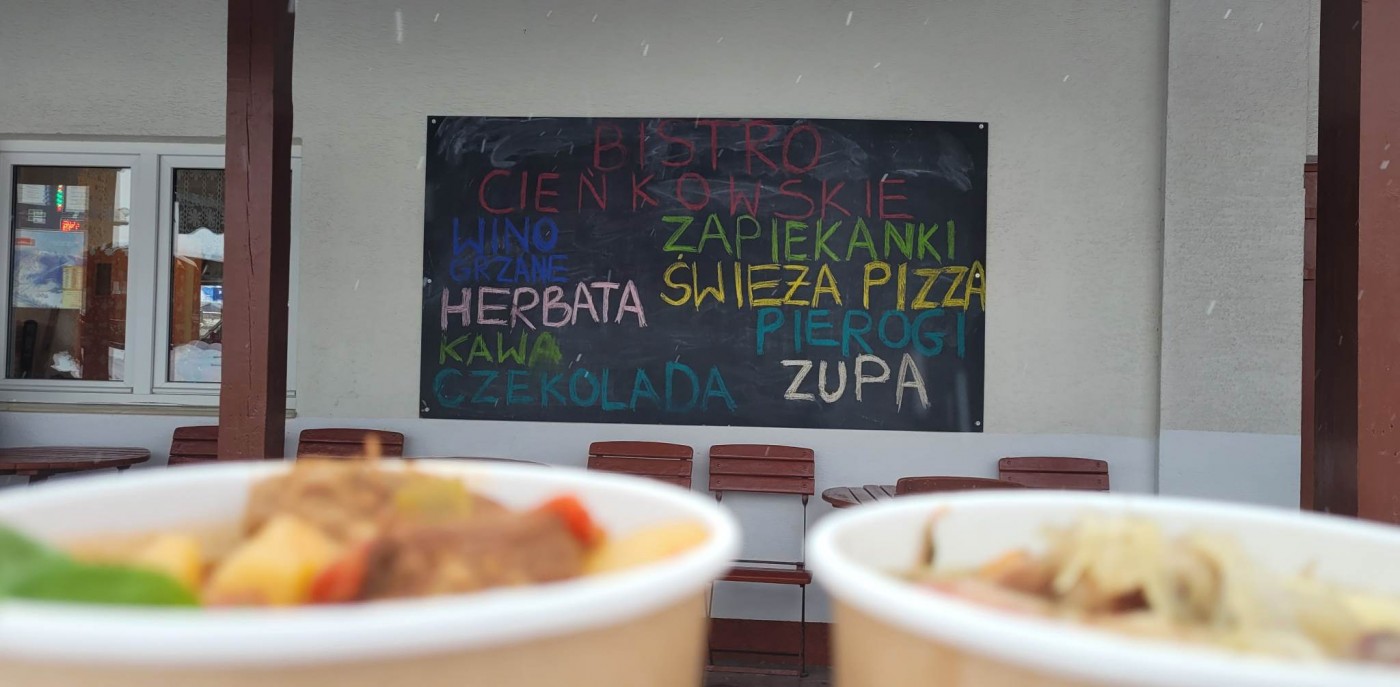 BISTRO
CIEŃKOWSKIE
WINO
GRZANE
HERBATA
KAWA
CZEKOLADA
ZAPIEKANKI
ŚWIEŻA PIZZA
PIEROGI
ZUPA